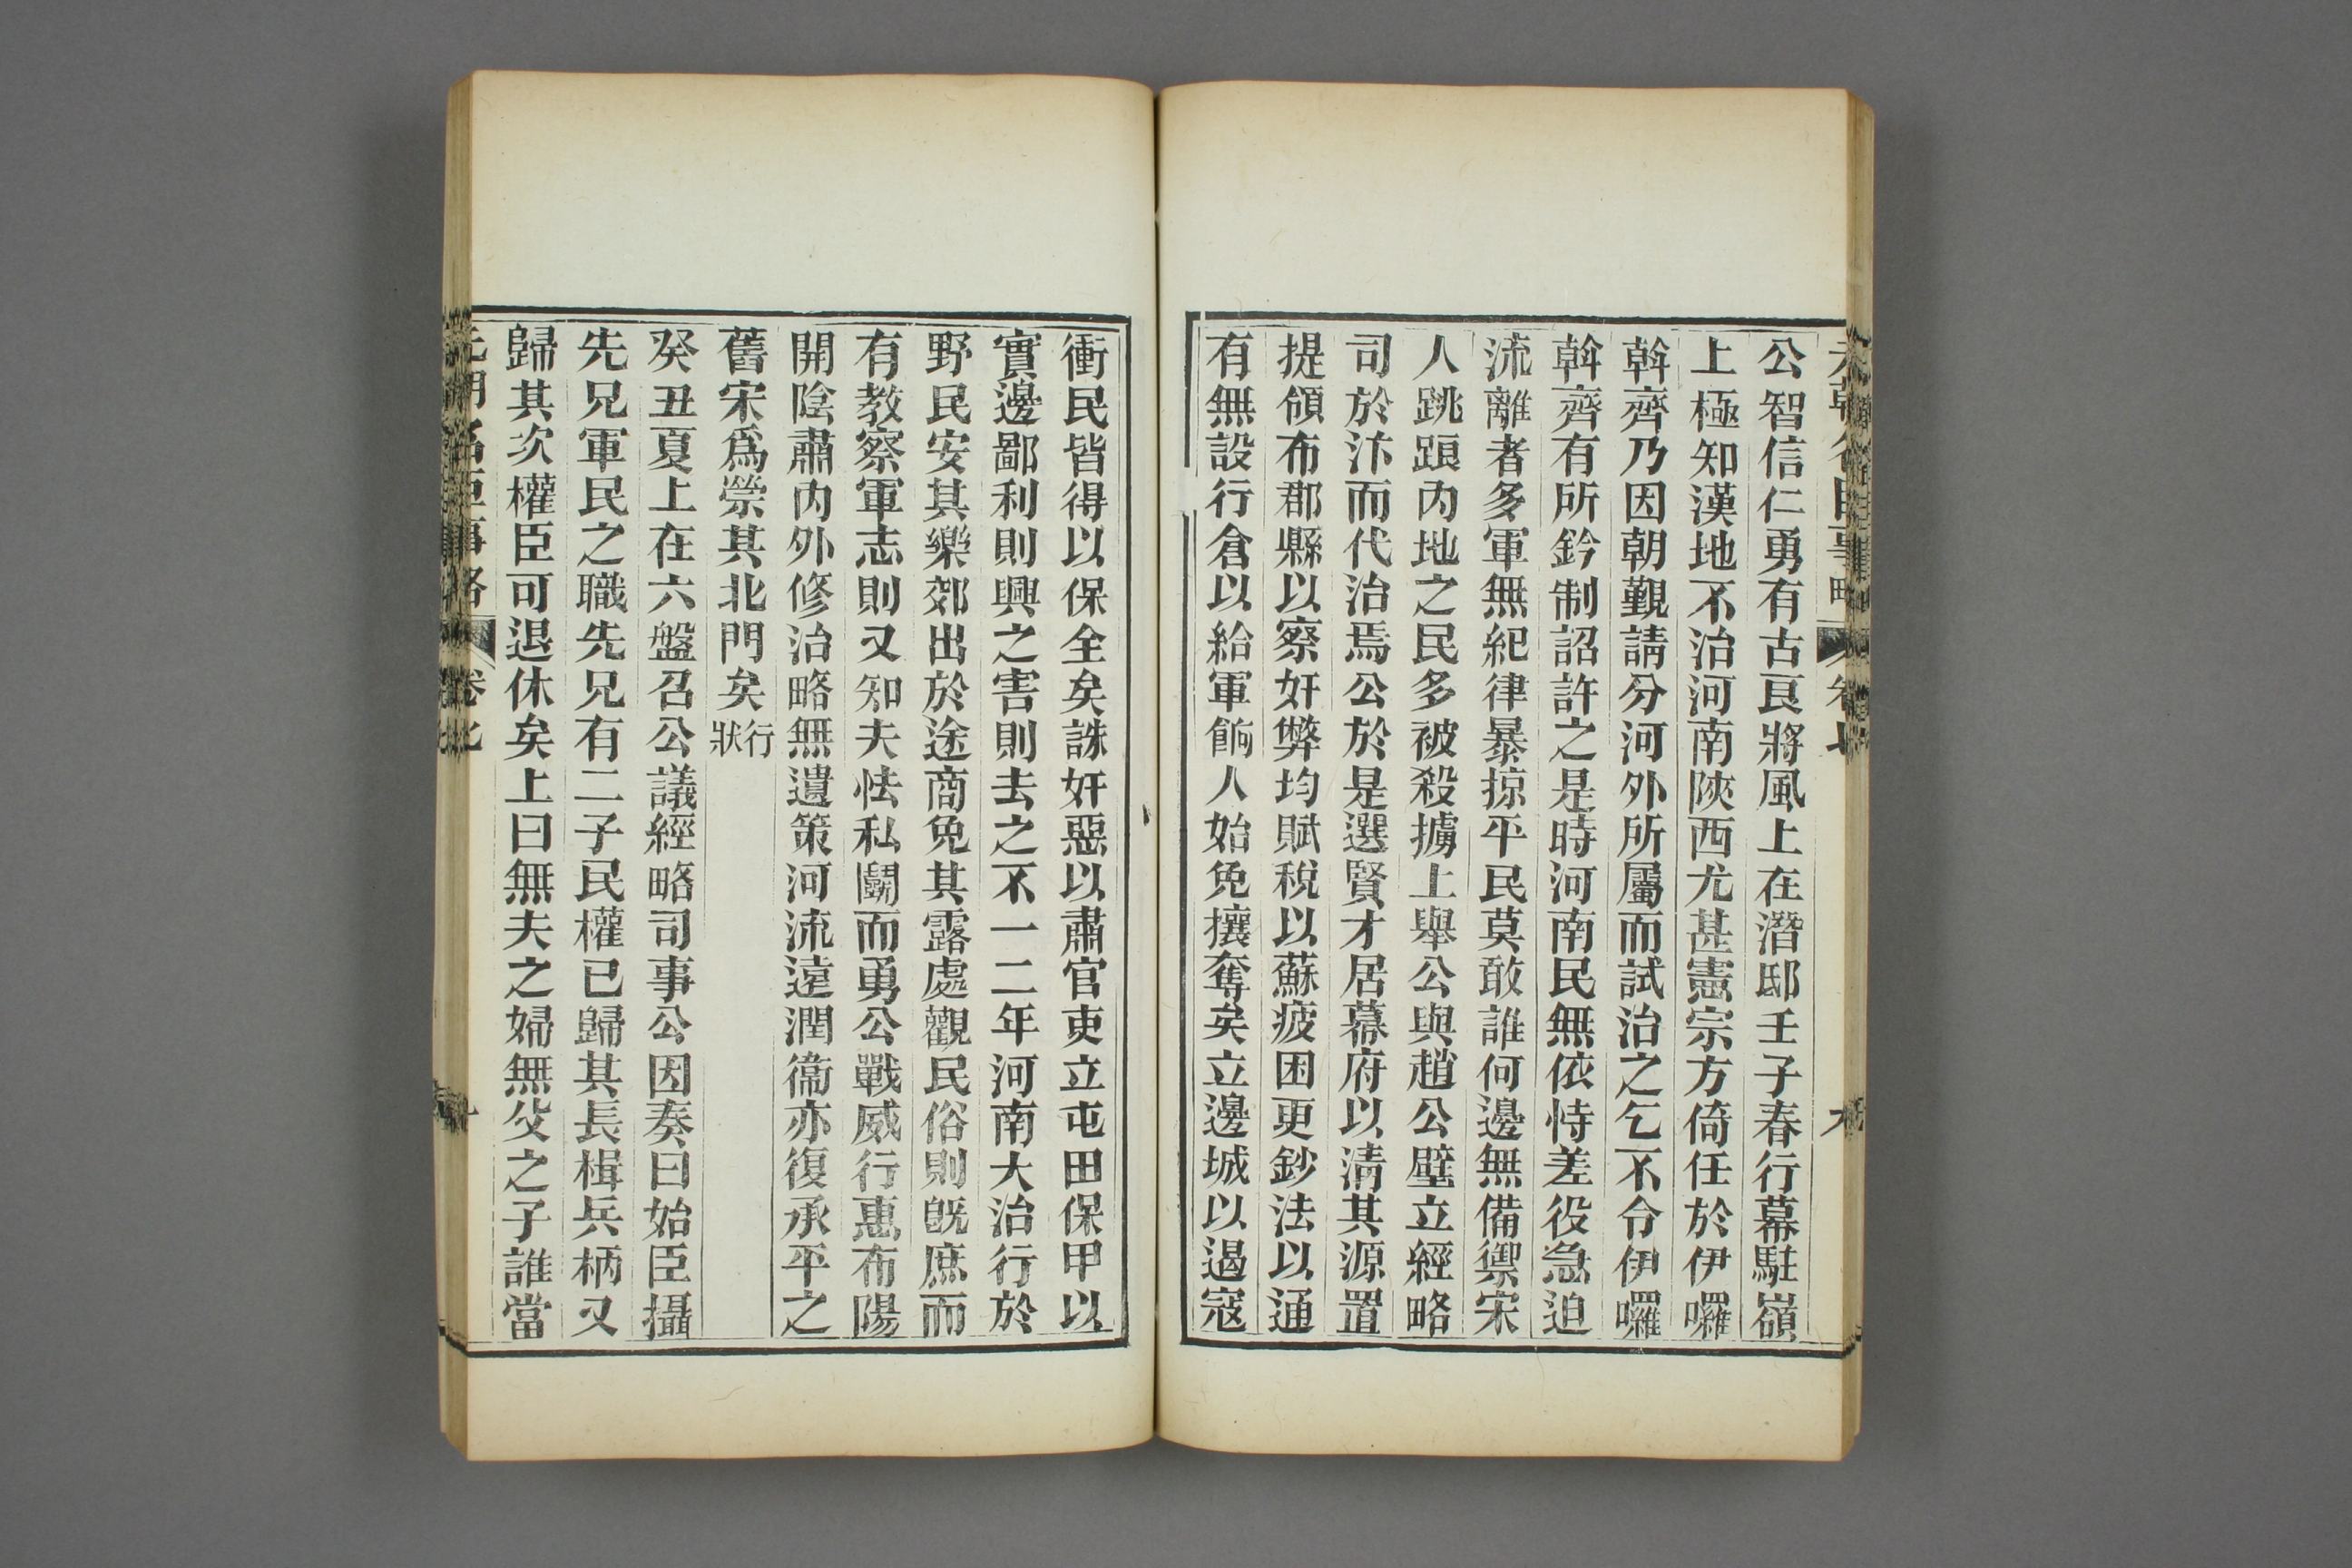 公智信仁勇有古良將風上在潛邸壬子春行幕駐嶺
上極知漢地不治河南陝西尤甚憲宗方倚任於伊囉
斡齊乃因朝覲請分河外所屬而試治之乞不令伊囉
斡齊有所鈐制詔許之是時河南民無依恃差役急迫
流離者多軍無紀律暴掠平民莫敢誰何邊無備禦宋
人跳踉內地之民多被殺擄上舉公與趙公壁立經略
司於汴而代治焉公於是選賢才居幕府以清其源置
提領布郡縣以察奸弊均賦稅以蘇疲困更鈔法以通
有無設行倉以給軍餉人始免攘奪矣立邊城以遏寇
衝民皆得以保全矣誅奸惡以肅官吏立屯田保甲以
實邊鄙利則興之害則去之不一二年河南大治行於
野民安其樂郊出於途商免其露處觀民俗則旣庶而
有教察軍志則又知夫怯私鬭而勇公戰威行惠布陽
開陰肅內外修治略無遺策河流遠潤衞亦復承平之
舊宋爲榮其北門矣行狀
癸丑夏上在六盤召公議經略司事公因奏曰始臣攝
先兄軍民之職先兄有二子民權已歸其長楫兵柄又
歸其次權臣可退休矣上曰無夫之婦無父之子誰當
元朝名臣事略 卷七